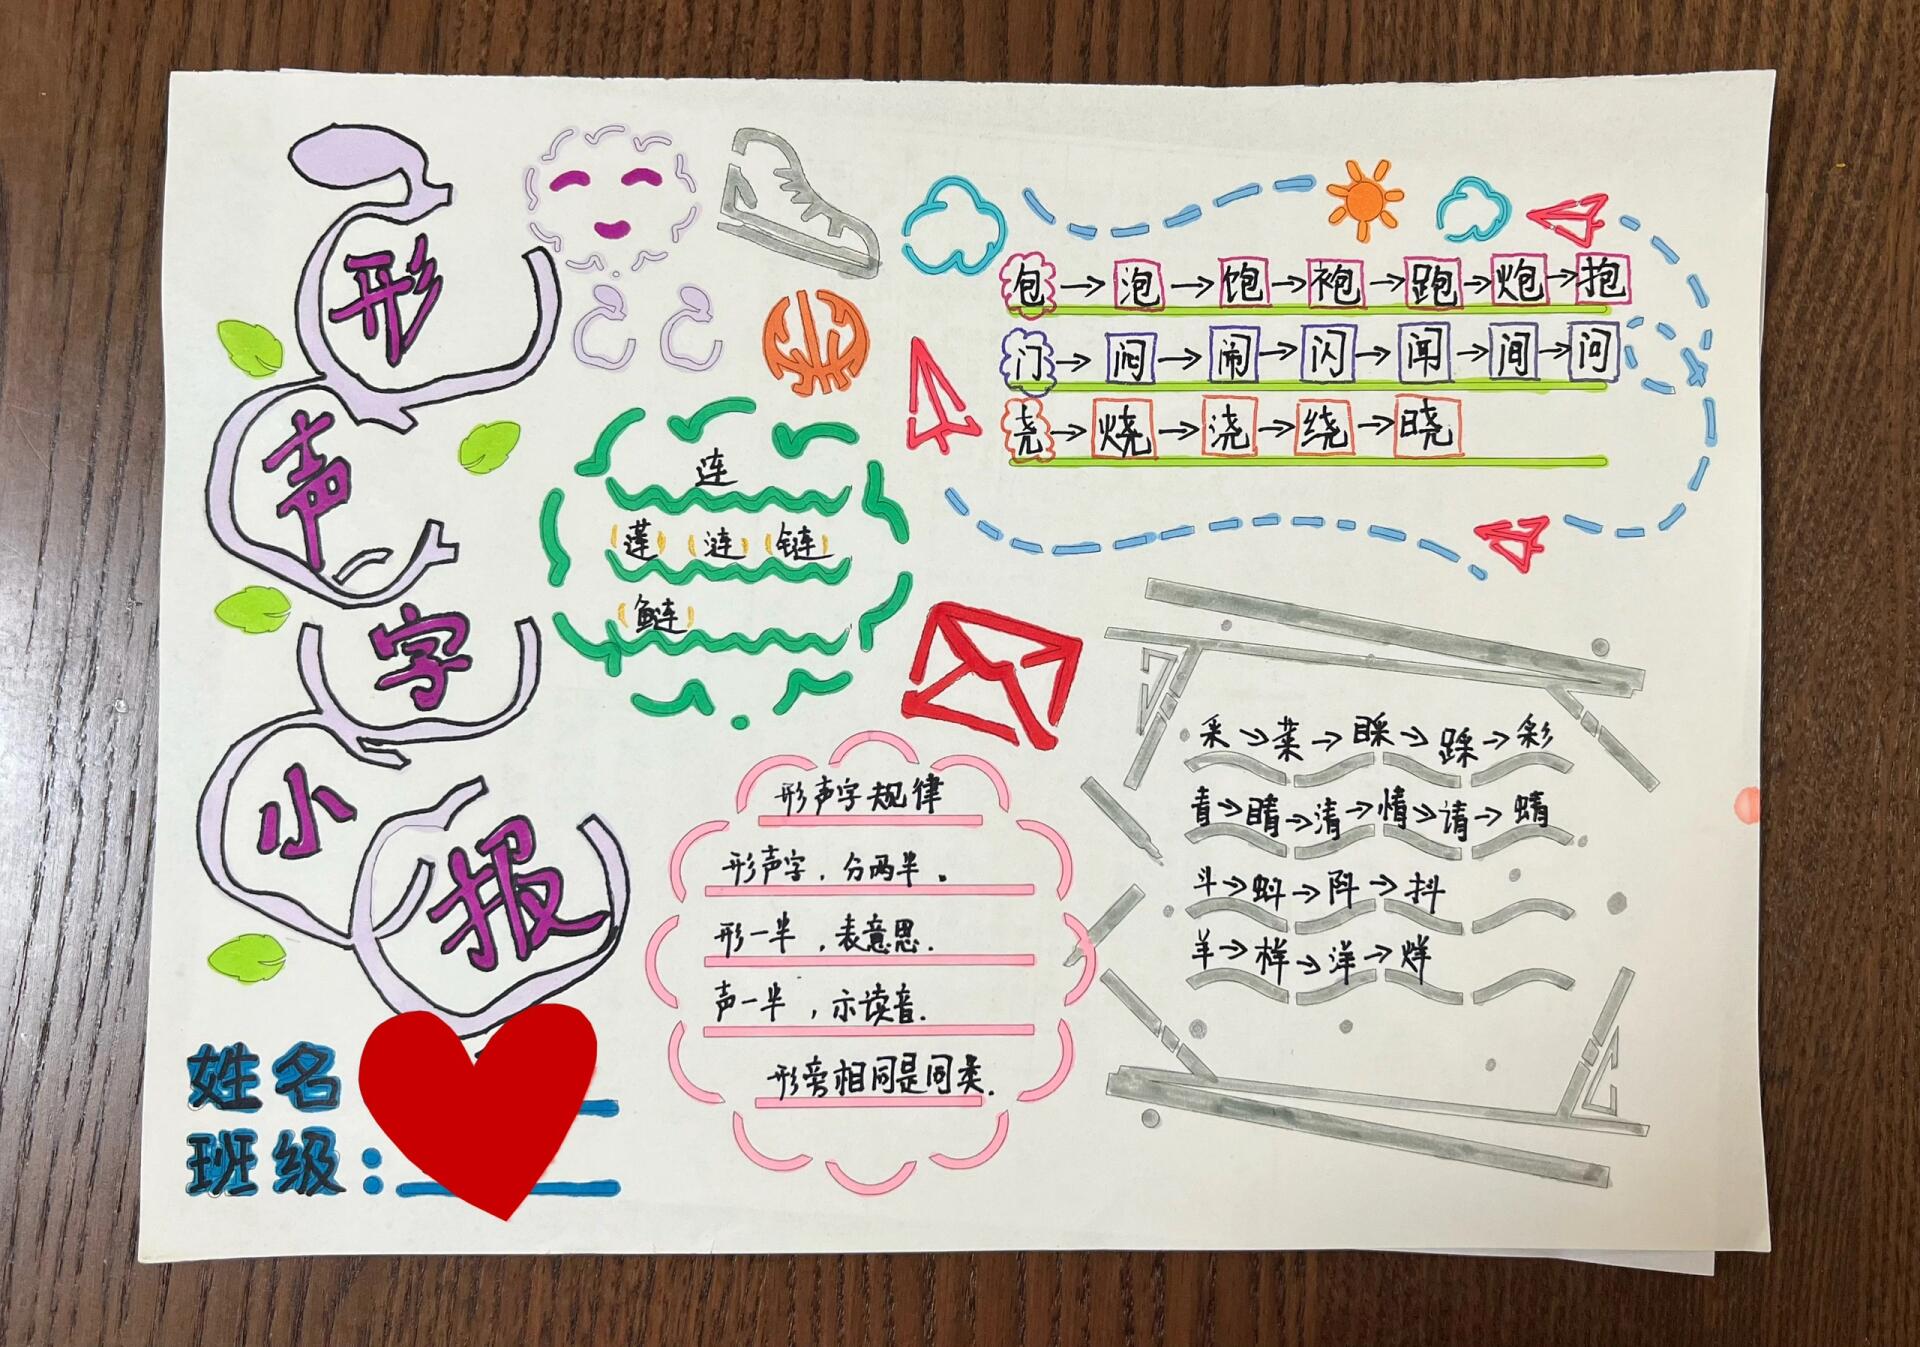 形声字小报
连
(莲) (涟) (链)
(鲢)
包→泡→饱→袍→跑→炮→抱
门→闷→闹→闪→闻→间→问
尧→烧→浇→绕→晓
形声字规律
形声字,分两半。
形一半,表意思.
声一半,示读音.
形旁相同是同类.
采→菜→睬→踩→彩
青→睛→清→情→请→蜻
斗→蚪→阧→抖
羊→样→洋→烊
姓名
班级: